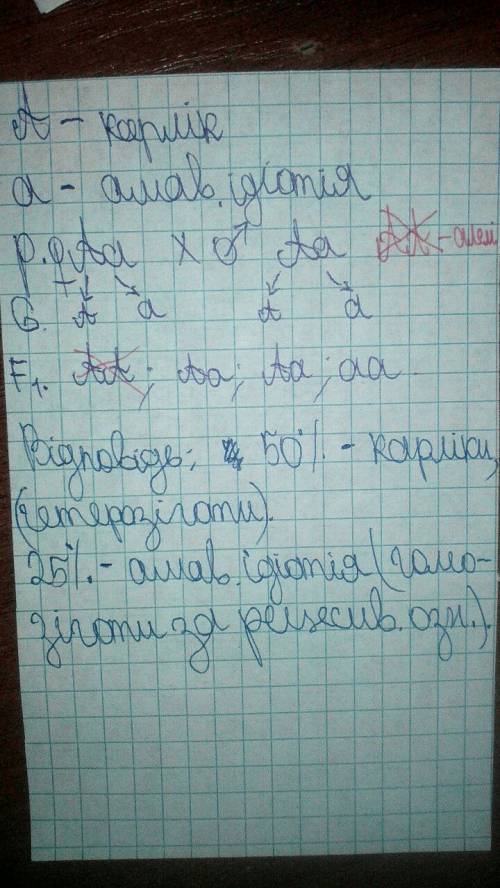 A - карлік
a - амав. ідіотія
P. ♀ Aa × ♂ Aa AA -
G. A a A a
F1. AA; Aa; Aa; aa
Відповідь: 50% - карліки,
(гетерозіготи).
25% - амав. ідіотія (гомо-
зіготи за рецесив. озн.).